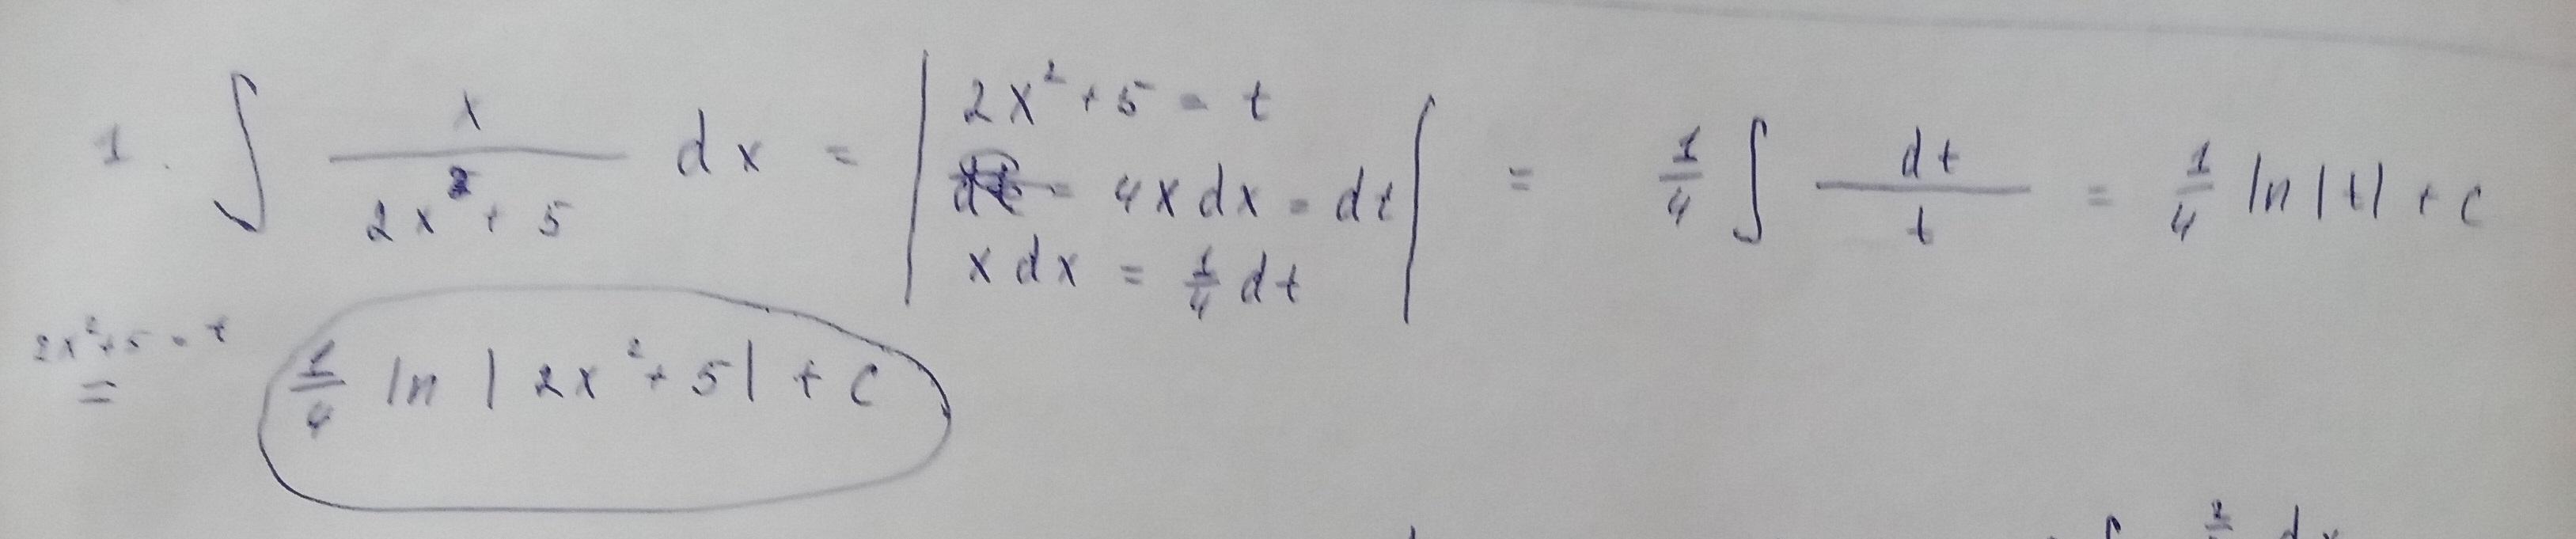 1. ∫ x / (2x² + 5) dx = | 2x² + 5 = t
4x dx = dt
x dx = 1/4 dt | = 1/4 ∫ dt / t = 1/4 ln |t| + C
2x² + 5 = t
= 1/4 ln | 2x² + 5 | + C